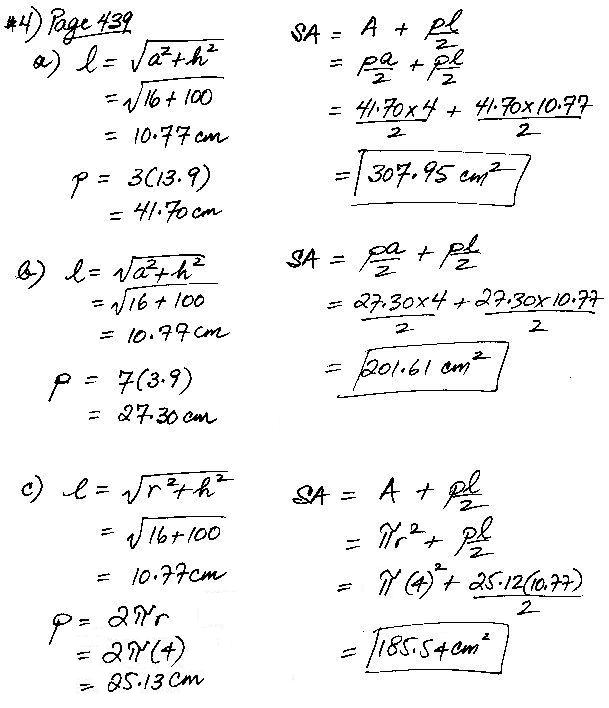 #4) Page 439
a) l = √a²+h²
= √16 + 100
= 10.77 cm
p = 3(13.9)
= 41.70 cm
SA = A + pl/2
= pa/2 + pl/2
= 41.70x4/2 + 41.70x10.77/2
= 307.95 cm²
b) l = √a²+h²
= √16 + 100
= 10.77 cm
p = 7(3.9)
= 27.30 cm
SA = pa/2 + pl/2
= 27.30x4/2 + 27.30x10.77/2
= 201.61 cm²
c) l = √r²+h²
= √16+100
= 10.77cm
p = 2πr
= 2π(4)
= 25.13 cm
SA = A + pl/2
= πr² + pl/2
= π(4)² + 25.12(10.77)/2
= 185.54 cm²